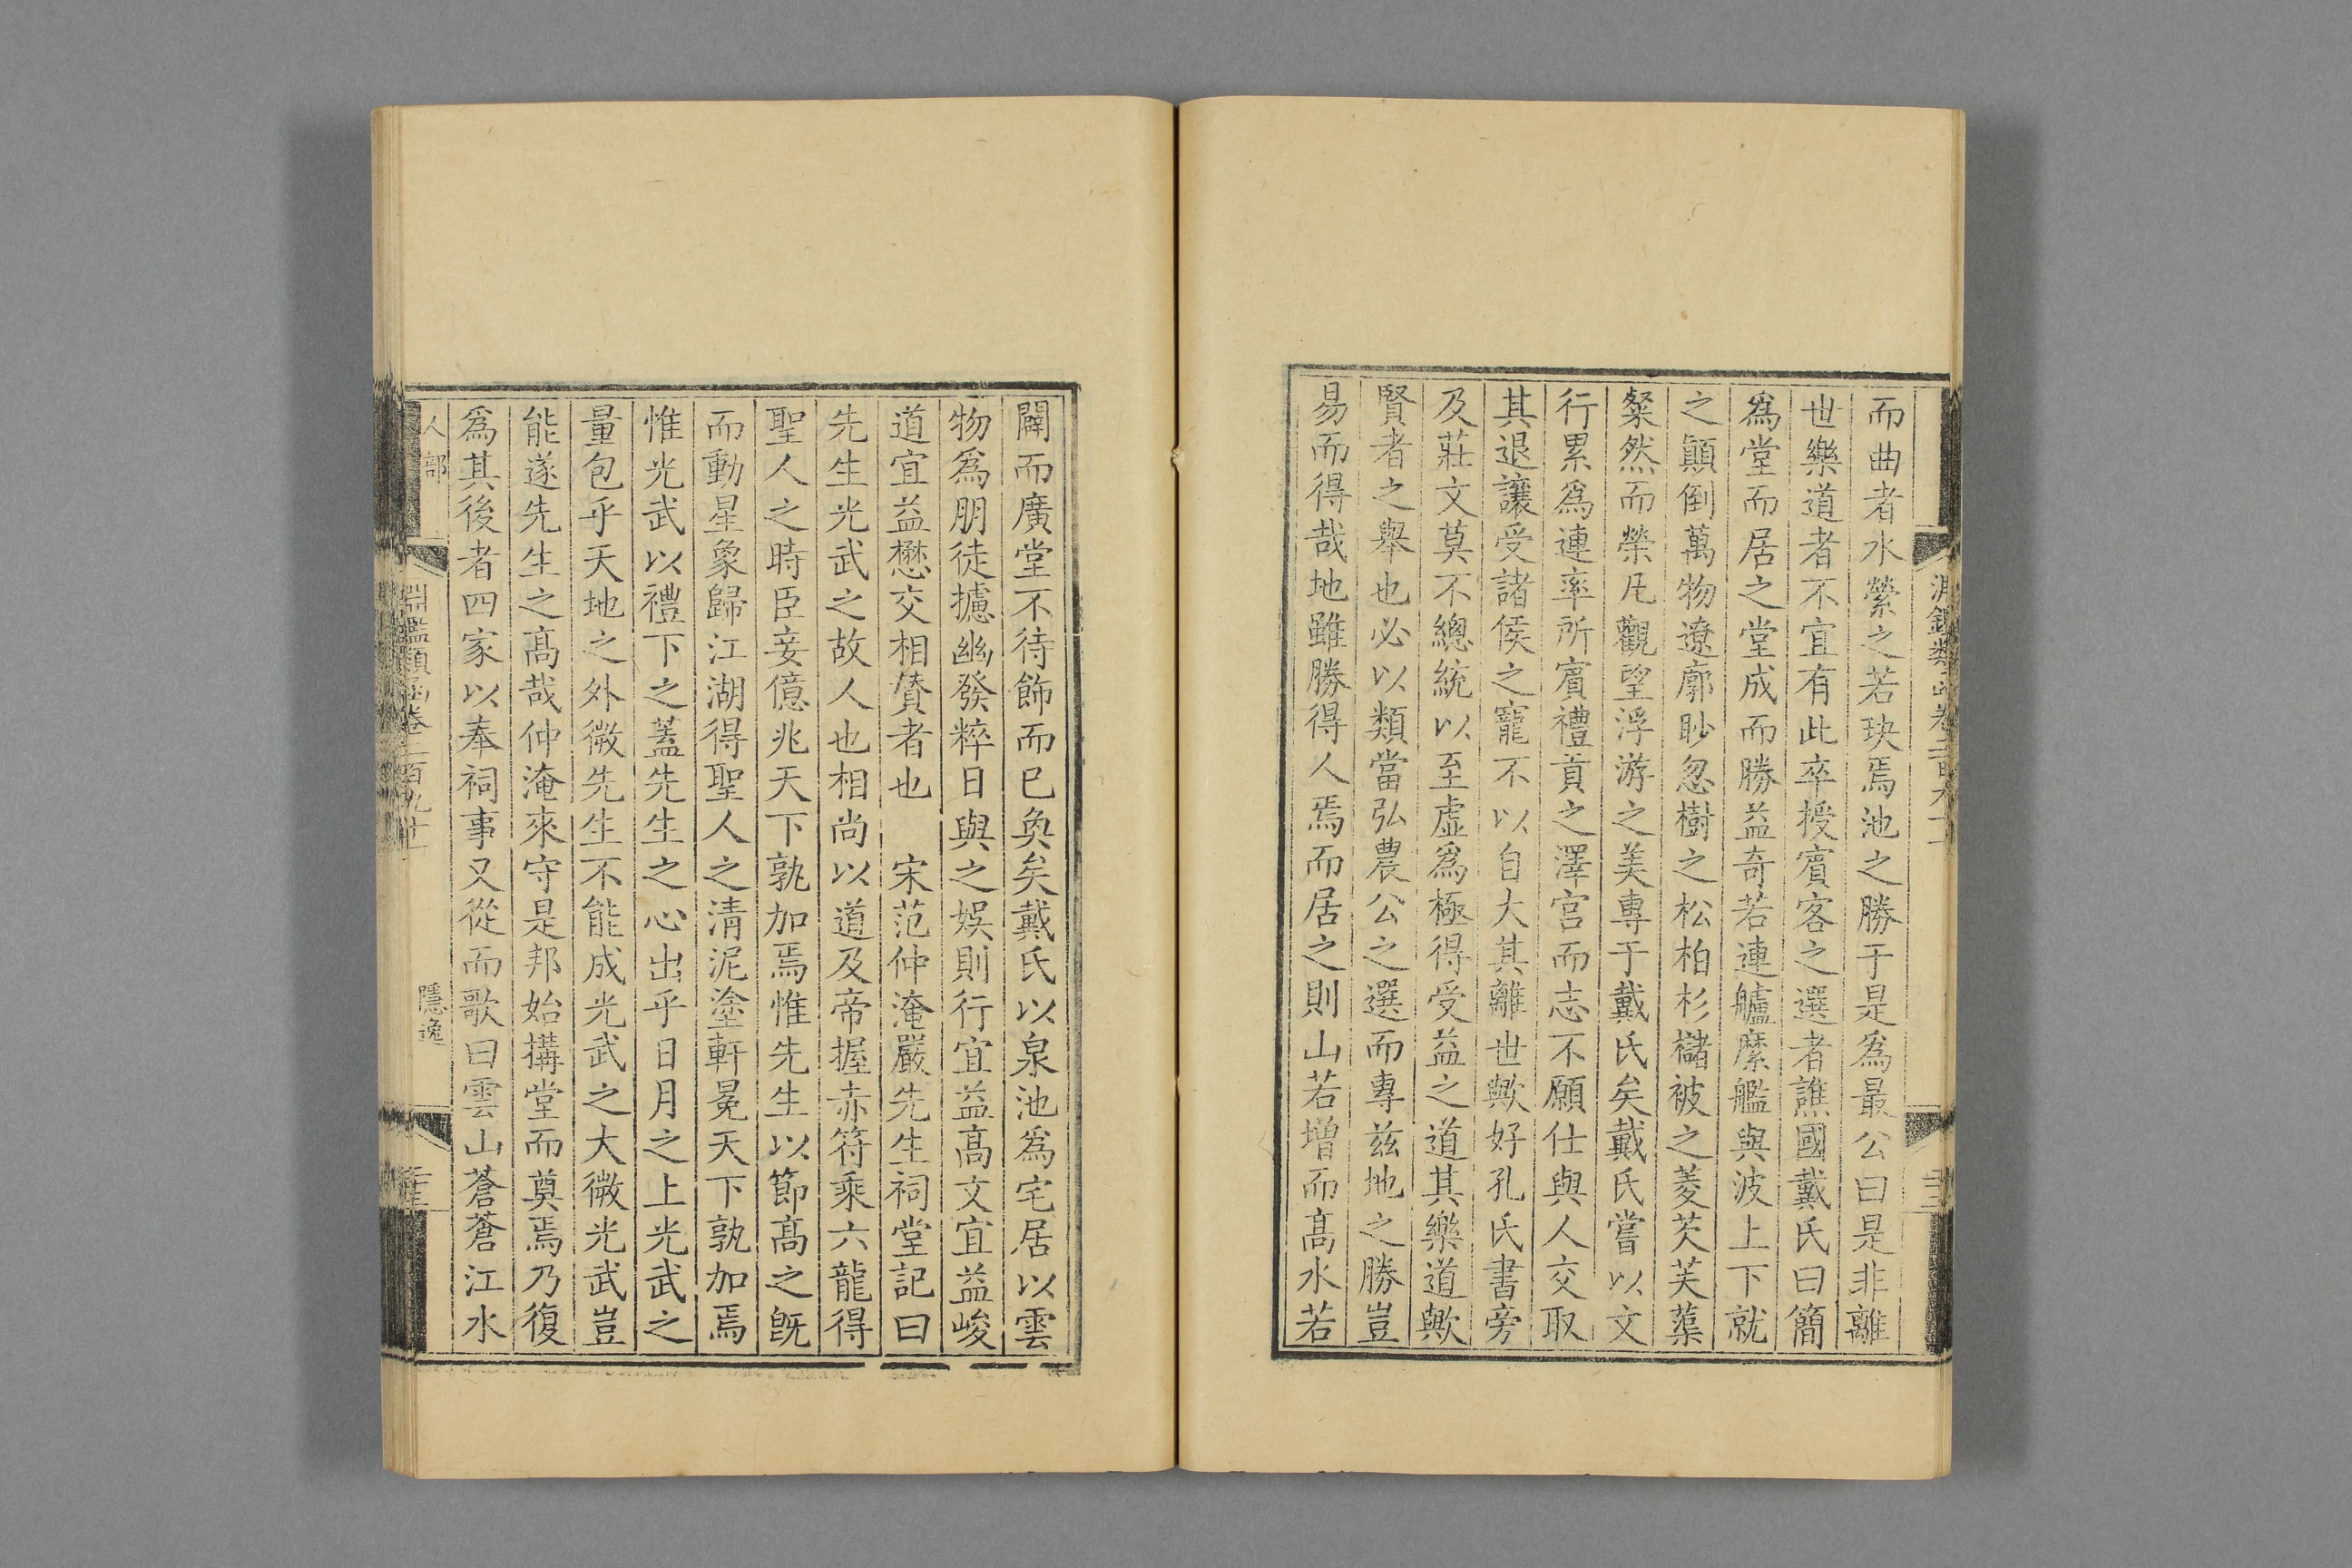 而曲者水縈之若玦焉池之勝于是爲最公曰是非離
世樂道者不宜有此卒授賓客之選者譙國戴氏曰簡
爲堂而居之堂成而勝益奇若連艫縻艦與波上下就
之顛倒萬物遼廓眇忽樹之松柏杉櫧被之菱芡芙蕖
粲然而榮凡觀望浮游之美專于戴氏矣戴氏嘗以文
行累爲連率所賓禮貢之澤宮而志不願仕與人交取
其退讓受諸侯之寵不以自大其離世歟好孔氏書旁
及莊文莫不總統以至虛爲極得受益之道其樂道歟
賢者之舉也必以類當弘農公之選而專兹地之勝豈
易而得哉地雖勝得人焉而居之則山若增而髙水若
闢而廣堂不待飾而已奐矣戴氏以泉池爲宅居以雲
物爲朋徒攄幽發粹日與之娱則行宜益髙文宜益峻
道宜益懋交相贊者也　宋范仲淹嚴先生祠堂記曰
先生光武之故人也相尚以道及帝握赤符乘六龍得
聖人之時臣妾億兆天下孰加焉惟先生以節髙之旣
而動星象歸江湖得聖人之清泥塗軒冕天下孰加焉
惟光武以禮下之蓋先生之心出乎日月之上光武之
量包乎天地之外微先生不能成光武之大微光武豈
能遂先生之髙哉仲淹來守是邦始搆堂而奠焉乃復
爲其後者四家以奉祠事又從而歌曰雲山蒼蒼江水
人部　淵鑑類函卷二百九十　隱逸